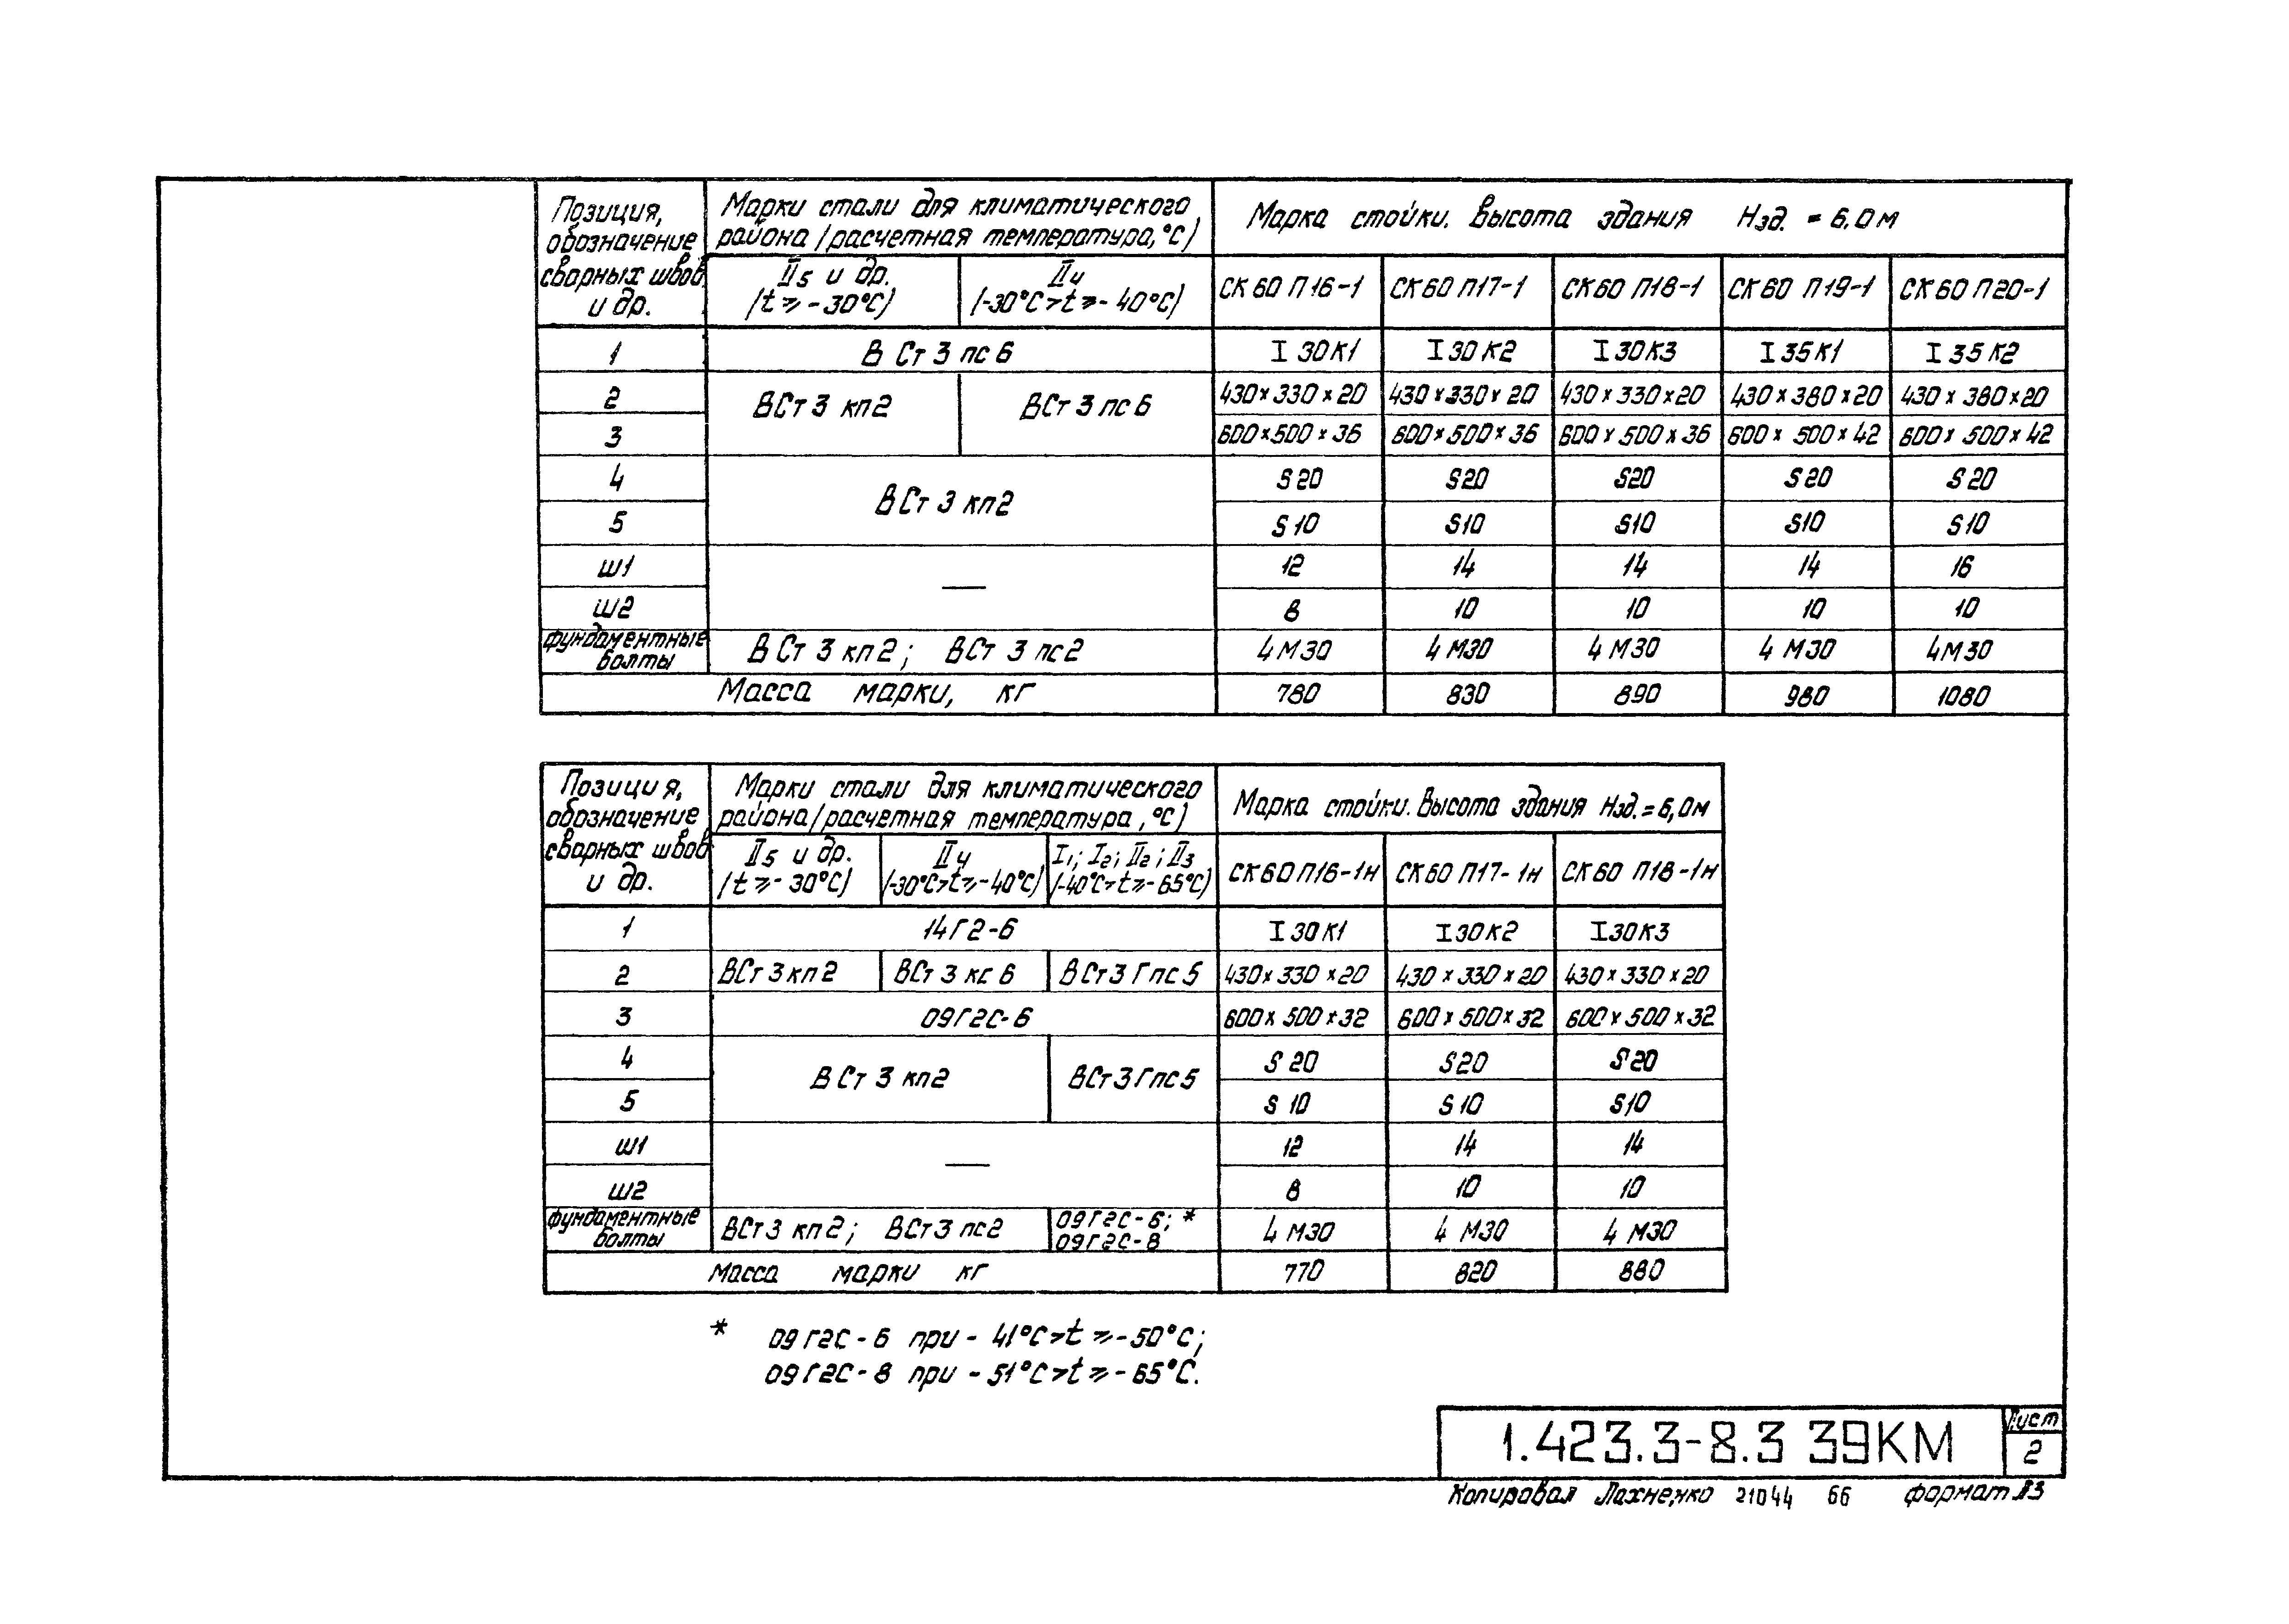 Позиция, обозначение сварных швов и др. | Марки стали для климатического района /расчетная температура, °С) | Марка стойки. Высота здания Нзд. = 6,0 м
II5 и др. (t ⩾ -30°С) | II4 (-30°С>t⩾-40°С) | СК 60 П 16-1 | СК60 П17-1 | СК60 П18-1 | СК 60 П19-1 | СК 60 П20-1
1 | В Ст 3 пс 6 | I 30К1 | I 30К2 | I 30К3 | I 35К1 | I 35К2
2 | ВСт 3 кп2 | ВСт 3 пс 6 | 430×330×20 | 430×330×20 | 430×330×20 | 430×380×20 | 430×380×20
3 | 600×500×36 | 600×500×36 | 600×500×36 | 600×500×42 | 600×500×42
4 | ВСт 3 кп2 | S 20 | S20 | S20 | S 20 | S 20
5 | S 10 | S10 | S10 | S10 | S10
ш1 | — | 12 | 14 | 14 | 14 | 16
ш2 | 8 | 10 | 10 | 10 | 10
фундаментные болты | В Ст 3 кп2; ВСт 3 пс2 | 4 М30 | 4 М30 | 4 М30 | 4 М30 | 4М30
Масса марки, кг | 780 | 830 | 890 | 980 | 1080
Позиция, обозначение сварных швов и др. | Марки стали для климатического района/расчетная температура, °С) | Марка стойки. Высота здания Нзд. = 6,0м
II5 и др. (t ⩾-30°С) | II4 (-30°С>t⩾-40°С) | I1; I2; II2; II3 (-40°С>t⩾-65°С) | СК60П16-1н | СК60 П17-1н | СК 60 П18-1н
1 | 14Г2-6 | I 30К1 | I30К2 | I30К3
2 | ВСт 3 кп 2 | ВСт 3 кс 6 | ВСт3 Гпс 5 | 430×330×20 | 430×330×20 | 430×330×20
3 | 09Г2С-6 | 600×500×32 | 600×500×32 | 600×500×32
4 | В Ст 3 кп2 | ВСт3Гпс 5 | S 20 | S20 | S20
5 | S 10 | S 10 | S10
ш1 | — | 12 | 14 | 14
ш2 | 8 | 10 | 10
фундаментные болты | ВСт3 кп2; ВСт3 пс2 | 09Г2С-6; * 09Г2С-8 | 4 М30 | 4 М30 | 4 М30
Масса марки кг | 770 | 820 | 880
* 09Г2С-6 при -41°С>t⩾-50°С;
09Г2С-8 при -51°С>t⩾-65°С.
1.423.3-8.3 39КМ
Лист
2
Копировал Лахненко 21044 66 формат А3